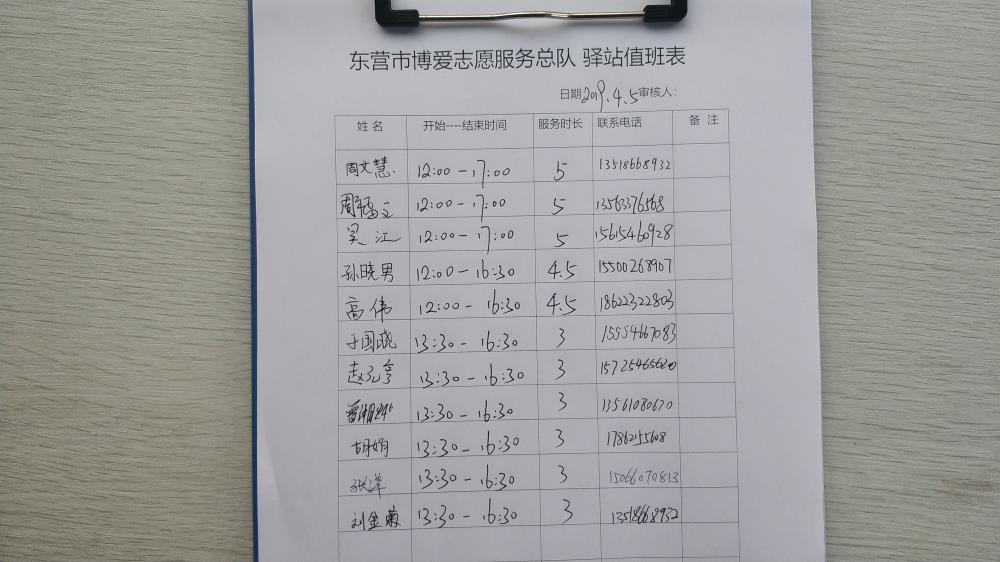 东营市博爱志愿服务总队 驿站值班表
日期2019.4.5审核人:
姓名 开始----结束时间 服务时长 联系电话 备注
周文慧 12:00-17:00 5 13518668932
周福云 12:00-17:00 5 13563376568
吴江 12:00-17:00 5 15615460928
孙晓男 12:00-16:30 4.5 15500268907
高伟 12:00-16:30 4.5 18622322803
于国晓 13:30-16:30 3 15554667083
赵元亨 13:30-16:30 3 15725465620
13:30-16:30 3 13561080670
胡娟 13:30-16:30 3 1786255608
张洋 13:30-16:30 3 15066070813
刘金菊 13:30-16:30 3 13518668932